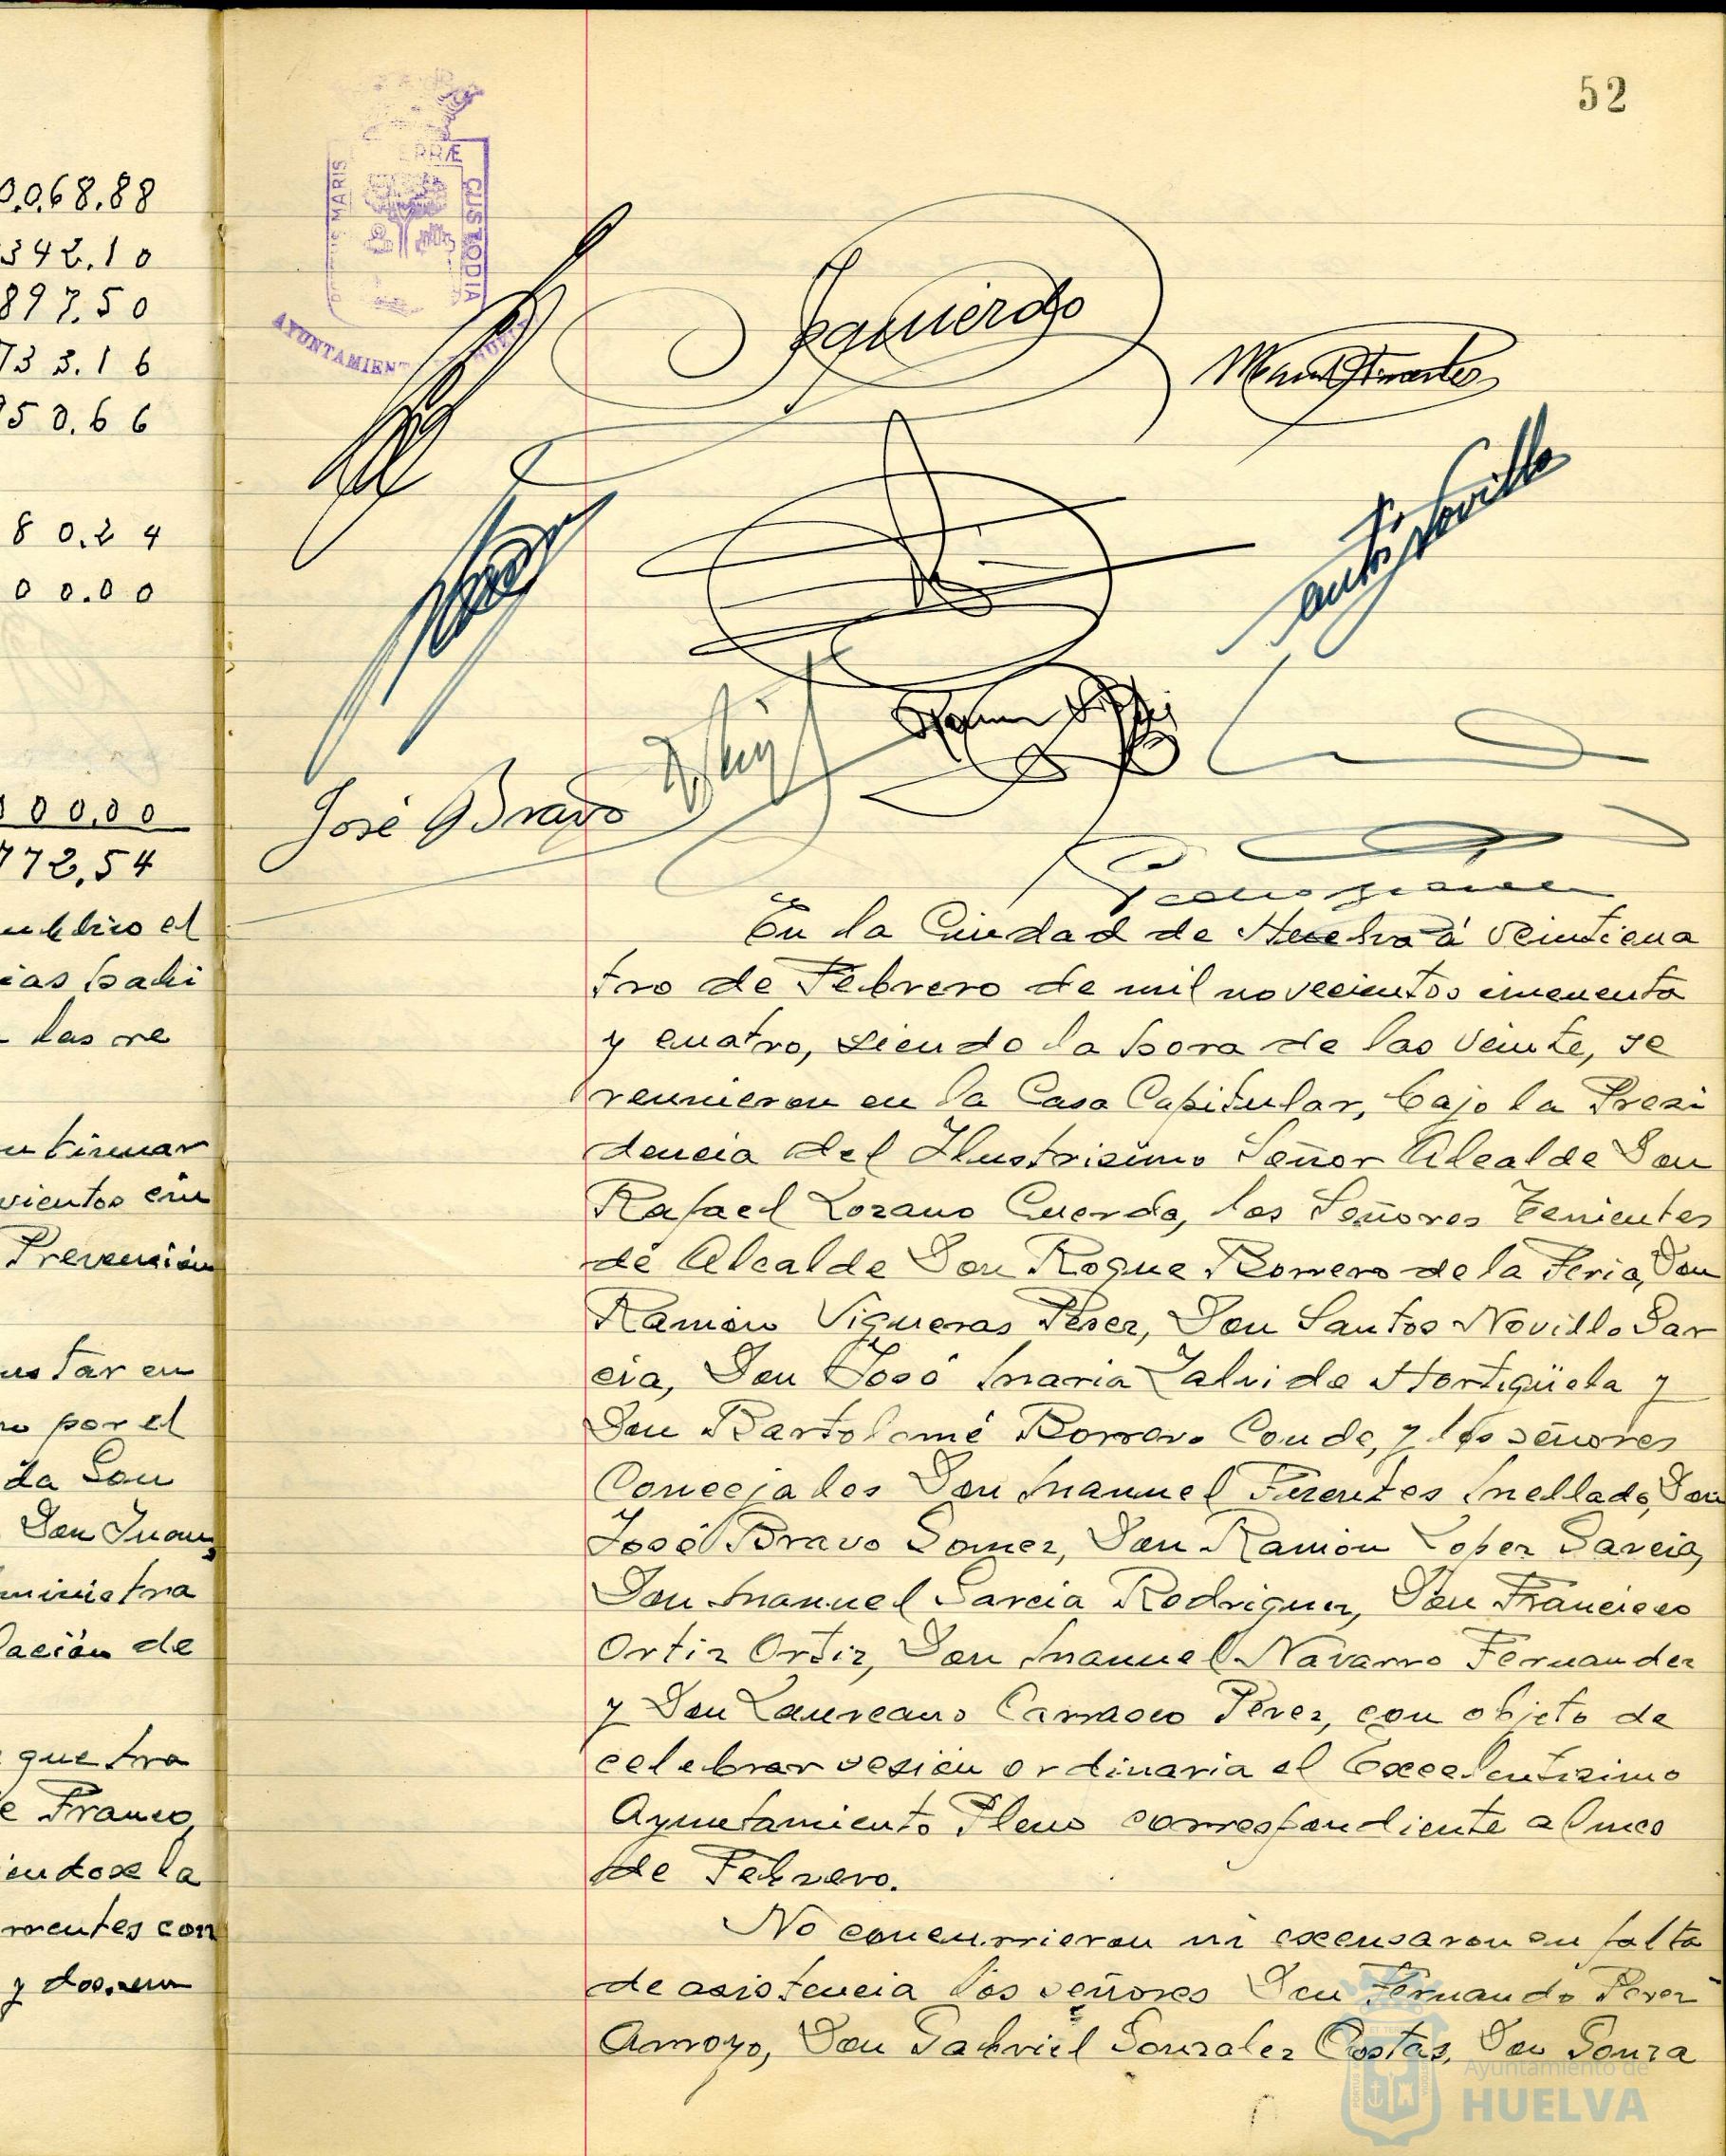 0.068.88
342.10
897.50
733.16
950.66
80.24
00.00
000,00
772,54
las re
Prevención
tar en
por el
da Gon
Don Juan,
ministra
lación de
que tra
e Franco,
iendose la
rrentes con
52
TERRÆ
MARIS
CUSTODIA
AYUNTAMIENTO DE HUELVA
Izquierdo
José Bravo
En la Ciudad de Huelva á veinticua
tro de Febrero de mil novecientos cincuenta
y cuatro, siendo la hora de las veinte, se
reunieron en la Casa Capitular, bajo la Presi
dencia del Ilustrisimo Señor Alcalde Don
Rafael Lozano Cuerda, los Señores Tenientes
de Alcalde Don Roque Romero de la Feria, Don
Ramón Vigueras Pérez, Don Santos Novillo Gar
cia, Don José Maria Zalvide Hortigüela y
Don Bartolomé Borrero Conde, y los señores
Concejales Don Manuel Fuentes Mellado, Don
José Bravo Gomez, Don Ramón Lopez Garcia,
Don Manuel Garcia Rodriguez, Don Francisco
Ortiz Ortiz, Don Manuel Navarro Fernandez
y Don Laureano Carrasco Pérez, con objeto de
celebrar sesión ordinaria el Excelentisimo
Ayuntamiento Pleno correspondiente al mes
de Febrero.
No concurrieron ni excusaron su falta
de asistencia los señores Don Fernando Perez
Arroyo, Don Gabriel Gonzalez Costas, Don Gonza
Ayuntamiento de
HUELVA